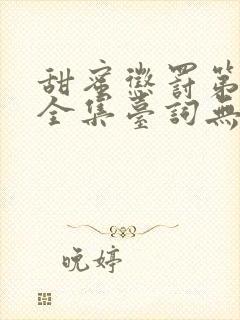 甜蜜懲罰第
全集臺詞無
晚婷